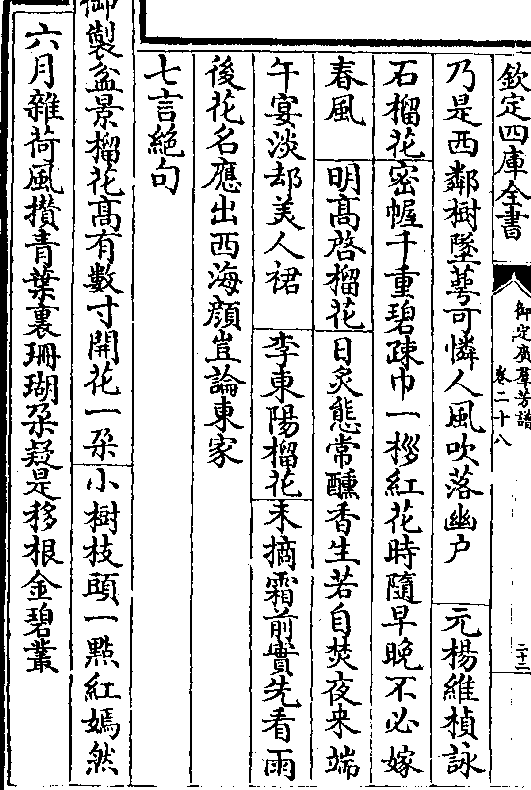 欽定四庫全書
御定廣羣芳譜
卷二十八
二十二
乃是西鄰樹墜蕚可憐人風吹落幽户 元楊維楨詠
石榴花密幄千重碧疎巾一桚紅花時隨早晚不必嫁
春風 明高啓榴花日炙態常醺香生若自焚夜來端
午宴淡却美人裙 李東陽榴花未摘霜前實先看雨
後花名應出西海顔豈論東家
七言絶句
御製盆景榴花高有數寸開花一朶小樹枝頭一點紅嫣然
六月雜荷風攢青葉裏珊瑚朶疑是移根金碧叢